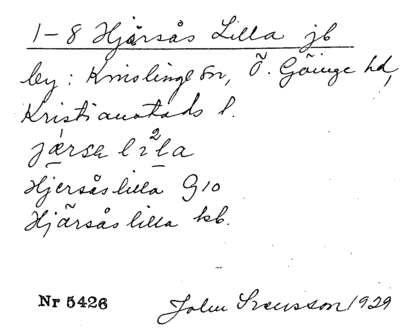 1-8 Hjärsås Lilla jb
by: Knislinge sn, Ö. Göinge hd,
Kristianstads l.
Hjersås lilla G10
Hjärsås lilla kb.
Nr 5426 John Svensson 1929